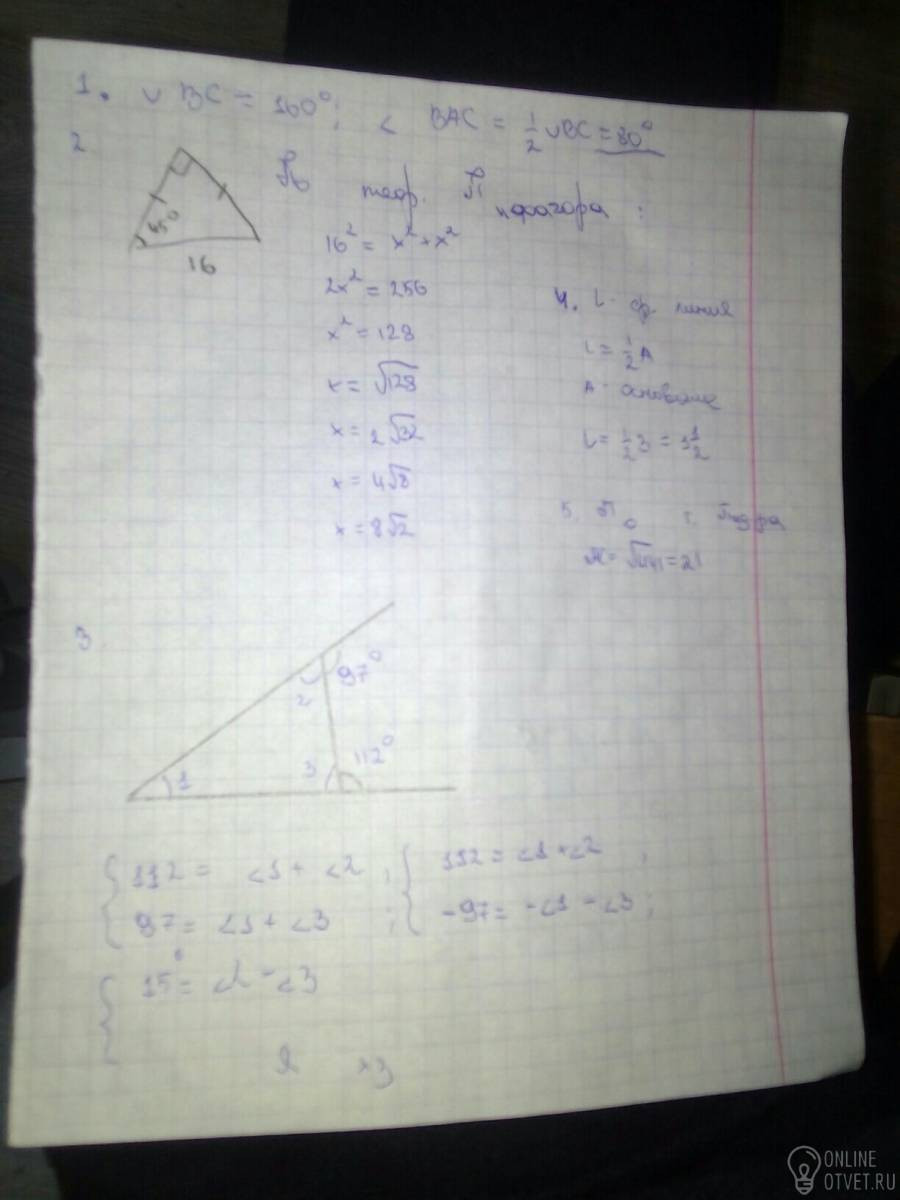 1. ◡ BC = 160°; ∠ BAC = 1/2 ◡BC = 80°
2
45°
16
По теор. Пифагора :
16² = x² + x²
2x² = 256
x² = 128
x = √128
x = 2√32
x = 4√8
x = 8√2
4. L - ср. линия
L = 1/2 A
A - основание
L = 1/2 3 = 1 1/2
5. По т.
= √441 = 21
3.
97°
2
3
112°
1
{ 112 = ∠1 + ∠2 ; { 112 = ∠1 + ∠2 ;
97 = ∠1 + ∠3 ; -97 = -∠1 - ∠3 ;
{ 15° = ∠2 - ∠3
Я хз
ONLINE
OTVET.RU